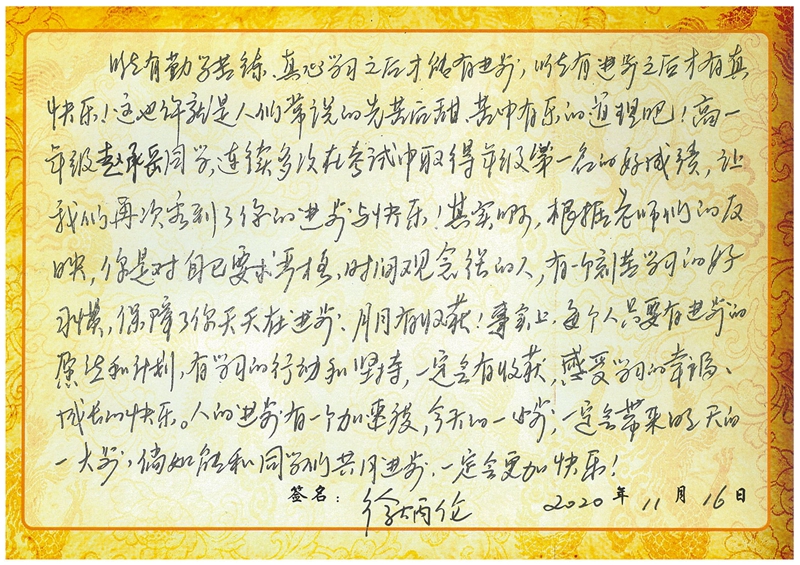 只有勤学苦练、真心学习之后才能有进步，只有进步之后才有真
快乐！这也许就是人们常说的先苦后甜、苦中有乐的道理吧！高一
年级赵承岳同学，连续多次在考试中取得年级第一名的好成绩，让
我们再次看到了你的进步与快乐！其实啊，根据老师们的反
映，你是对自己要求严格，时间观念强的人，有一个刻苦学习的好
习惯，保障了你天天在进步、月月有收获！事实上，每个人只要有进步的
想法和计划，有学习的行动和坚持，一定会有收获，感受学习的幸福、
成长的快乐。人的进步有一个加速度，今天的一小步，一定会带来明天的
一大步，倘如能和同学们共同进步，一定会更加快乐！
签名：徐炳伦 2020年11月16日